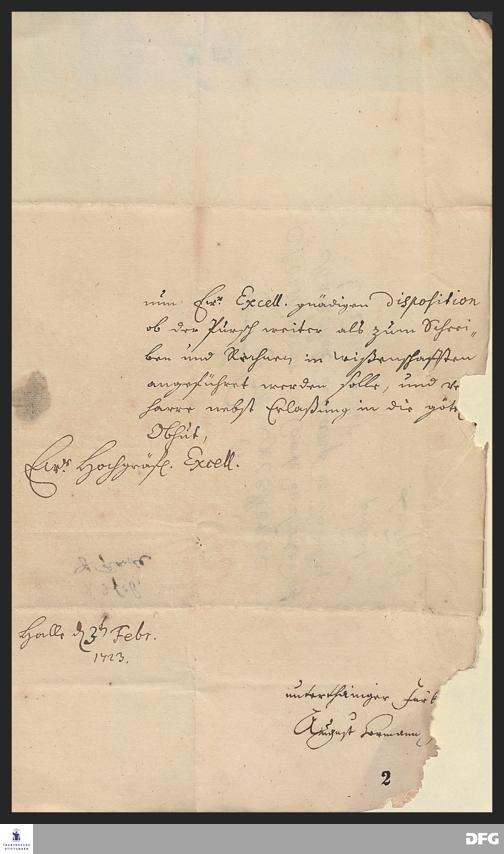 nun Ewr. Excell. gnädigen Disposition
ob der Pursch weiter als zum Schrei=
ben und Rechnen in Wißenschafften
angeführet werden solle, und ve
harre nebst Erlaßung in die götl
Obhut,
Ewr. Hochgräfl. Excell.
Halle d. 3t Febr.
1723.
unterthäniger
August
2
FRANCKESCHE STIFTUNGEN
DFG